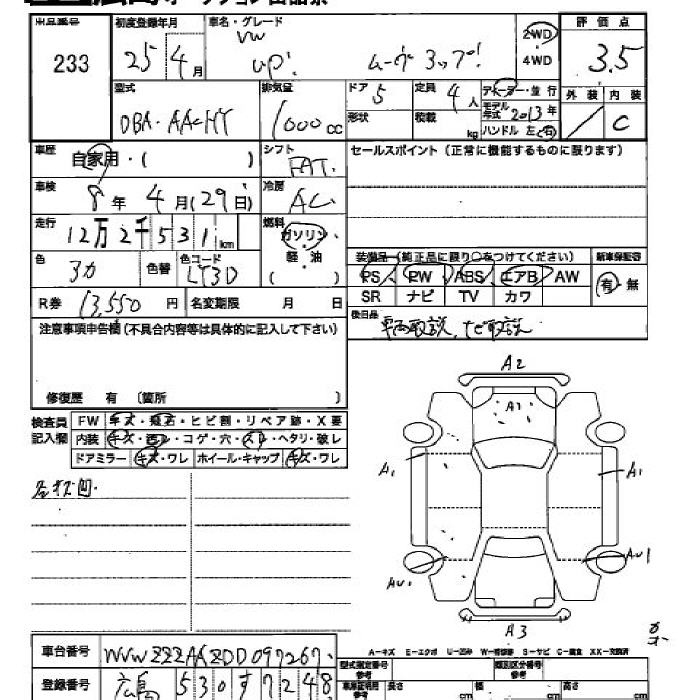 出品番号 初度登録年月 車名・グレード 評価点
VW 2WD
233 25年4月 up! ムーヴ アップ! 4WD 3.5
型式 排気量 ドア 5 定員 4人 ディーラー・並行 外装 内装
DBA-AACHY 1000cc 形状 積載 kg モデル年式 2013年 ハンドル 左 右 C
車歴 自家用・( ) シフト FAT セールスポイント(正常に機能するものに限ります)
車検 8年4月(29日) 冷房 AC
走行 12万2千531km 燃料 ガソリン・軽油 ( )
色 アカ 色替 色コード LY3D 装備品(純正品に限り○をつけてください) 新車保証書
PS PW ABS エアB AW 有・無
R券 13,550円 名変期限 月 日 SR ナビ TV カワ
注意事項申告欄(不具合内容等は具体的に記入して下さい) 後日品 車両取説、ナビ取説
修復歴 有 〔箇所 〕
検査員記入欄 FW キズ・飛石・ヒビ割・リペア跡・X要
内装 キズ・・コゲ・穴・スレ・ヘタリ・破レ
ドアミラー キズ・ワレ ホイール・キャップ キズ・ワレ
A2
A1
A1 A1
AU1 AU1
A3
A-キズ E-エクボ U-凹み W-補修跡 S-サビ C-腐食 XX-交換済
車台番号 WVWZZZAAZDD097267 型式指定番号 類別区分番号
登録番号 広島 530 す 7248 長さ cm 幅 cm 高さ cm